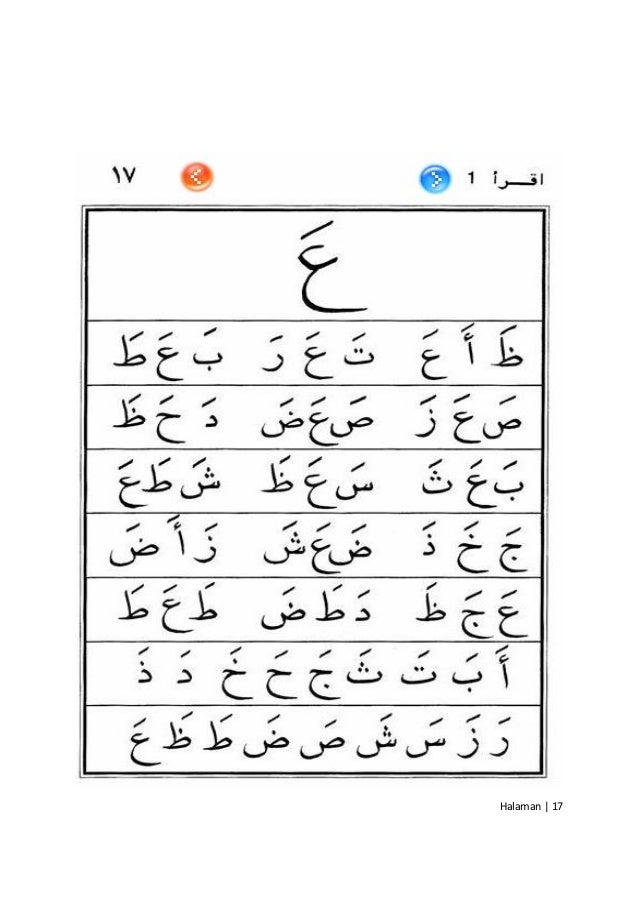 اقـــرأ 1 ١٧
عَ
ظَ أَ عَ تَ عَ رَ بَ عَ طَ
صَ عَ زَ صَ عَ ضَ دَ حَ ظَ
بَ عَ ثَ سَ عَ ظَ شَ طَ عَ
جَ خَ ذَ ضَ عَ شَ زَ أَ ضَ
عَ جَ ظَ دَ طَ ضَ طَ عَ طَ
أَ بَ تَ ثَ جَ حَ خَ دَ ذَ
رَ زَ سَ شَ صَ ضَ طَ ظَ عَ
Halaman | 17